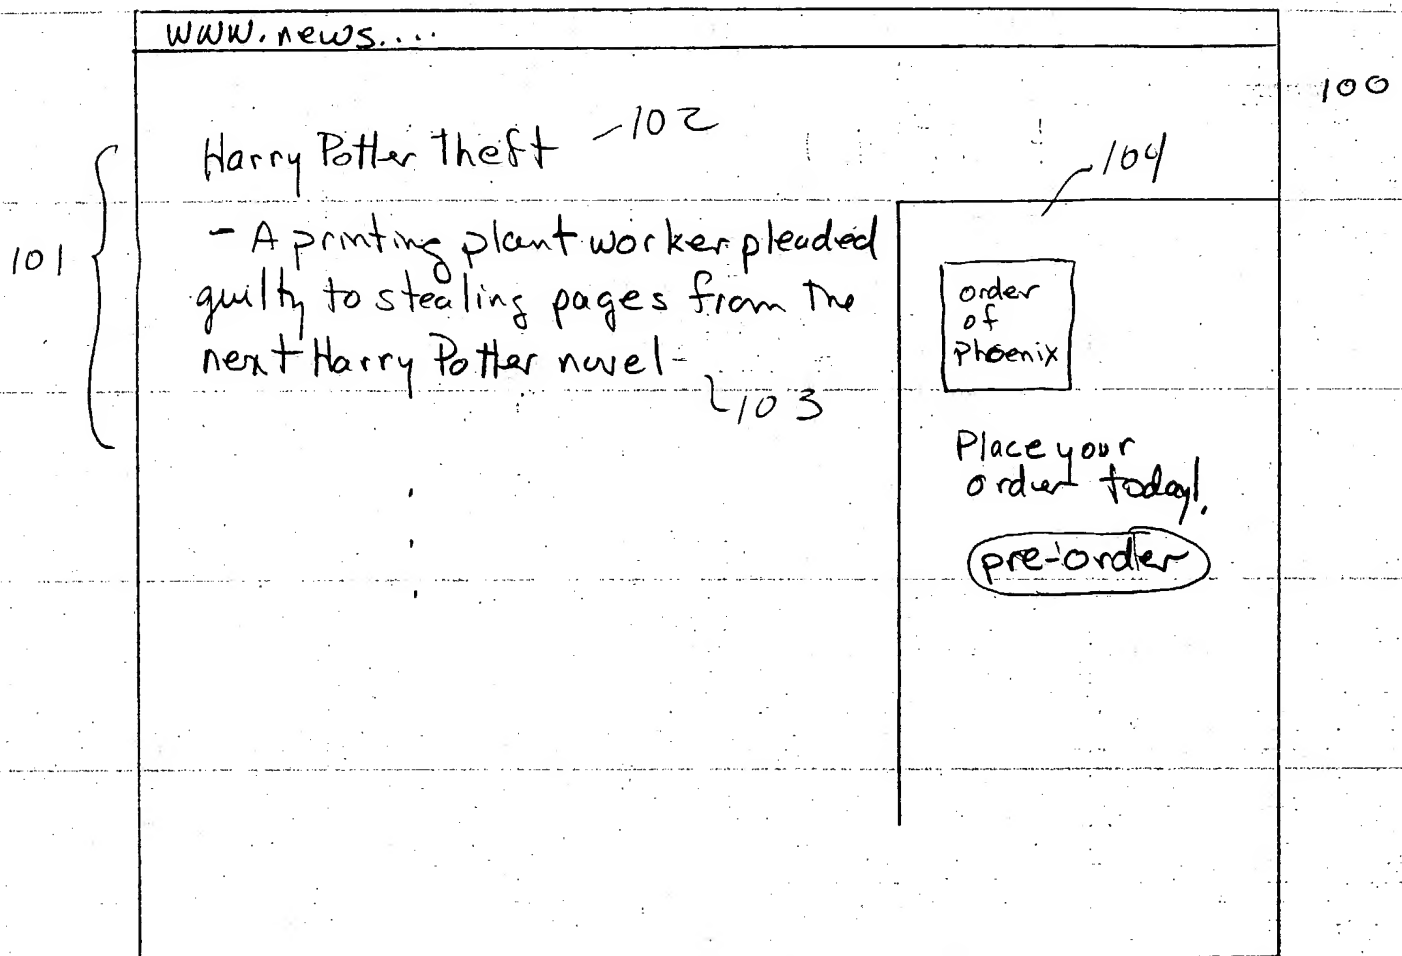 www.news....
100
Harry Potter Theft 102
104
101
- A printing plant worker pleaded
guilty to stealing pages from the
next Harry Potter novel-
103
order
of
phoenix
Place your
order today!
pre-order